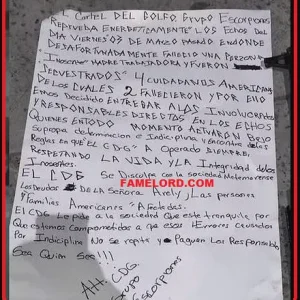 El Cartel DEL GOLFO Grupo Escorpiones
Reprueba Energeticamente los Echos del
Dia Viernes 03 de Marzo Pasado Endonde
Desafortunadamente Fallecio una Persona
Inocente Madre Trabajadora y Fueron
Secuestrados 4 Ciudadanos Americanos
De los cuales 2 Fallecieron y Por ello
Emos Decidido Entregar A los Involucrados
y Responsables Directos en los Echos
Quienes en todo Momento Actuaron Bajo
Su propia determinacion e Indiciplina y Encontra de las
Reglas en que "El CDG" A Operado Siempre,
RESPETANDO LA VIDA y LA Integridad de los
Inocentes.
EL CDG Se Disculpa con la Sociedad de Matamoros
FAMELORD.COM
Los Deudos de la Señora Arely y Las personas
y Familias Americanas Afectadas.
El CDG Le pide a la sociedad que este tranquila por
Que estamos Comprometidos a que esos Errores Causados
Por Indiciplina No se repita y Paguen Los Responsables
Sea Quien Sea !!!
Att. CDG
Grupo
Escorpiones